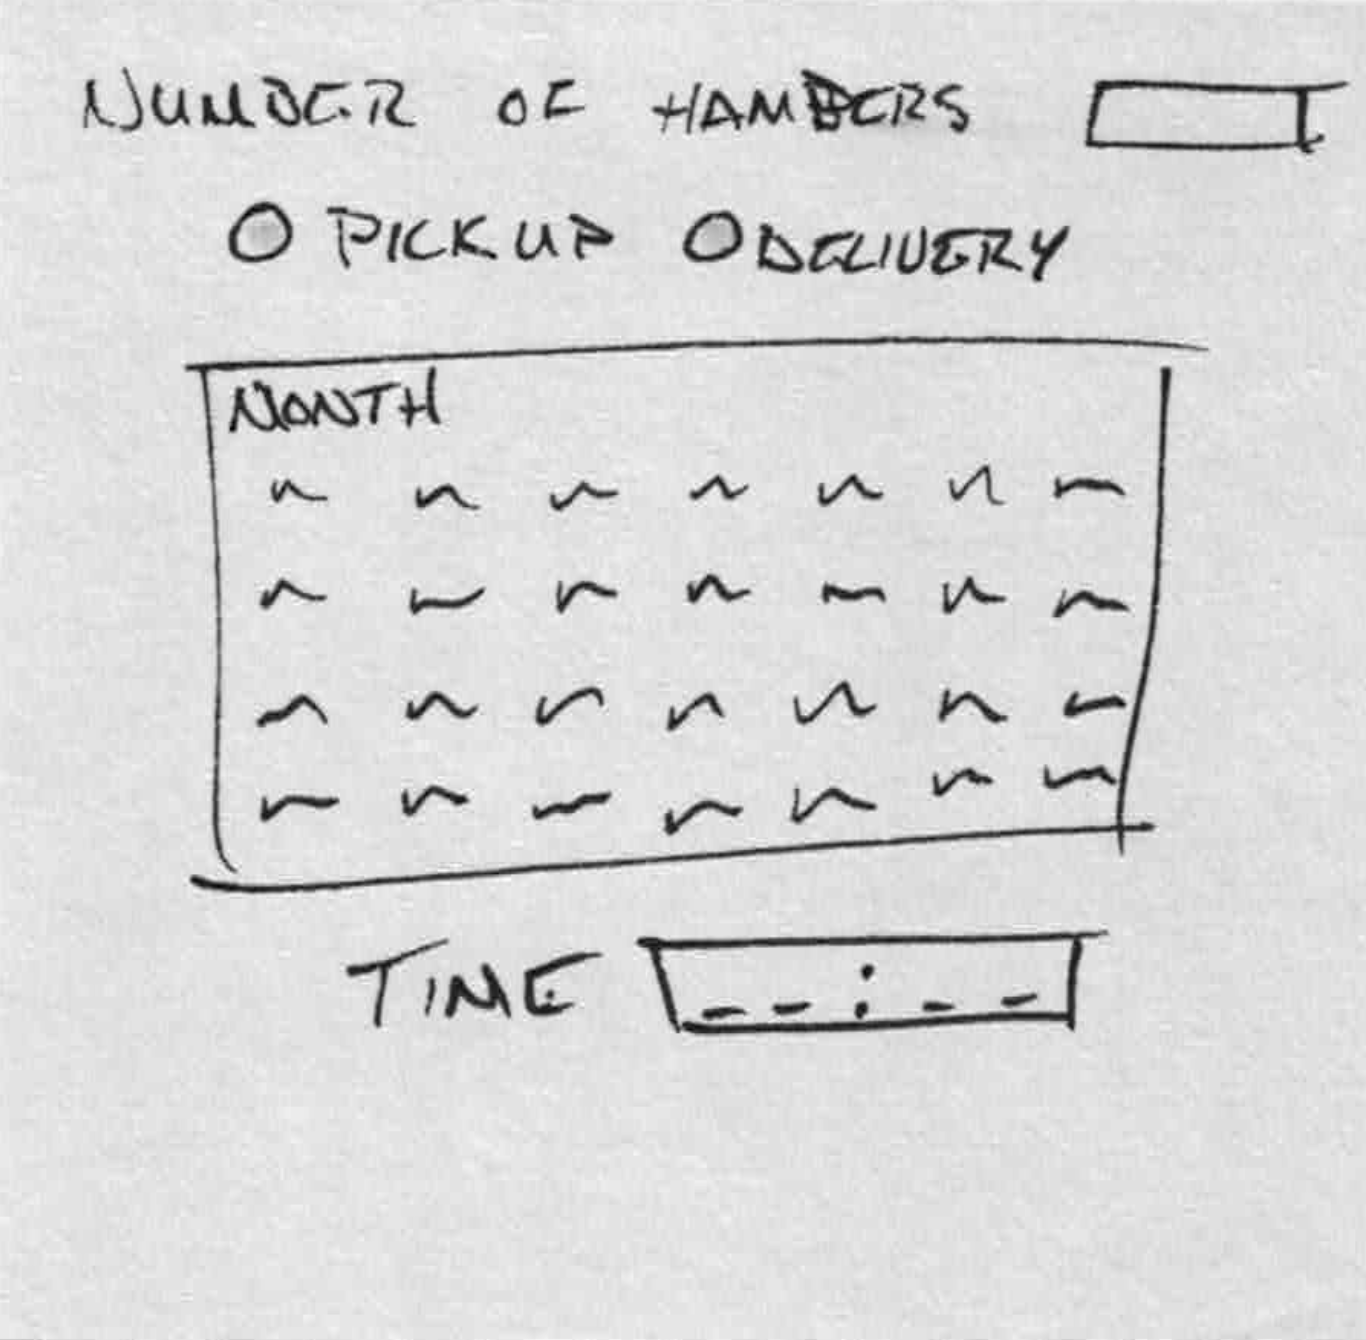 NUMBER OF HAMBERS
PICKUP DELIVERY
MONTH
TIME _ _ : _ _